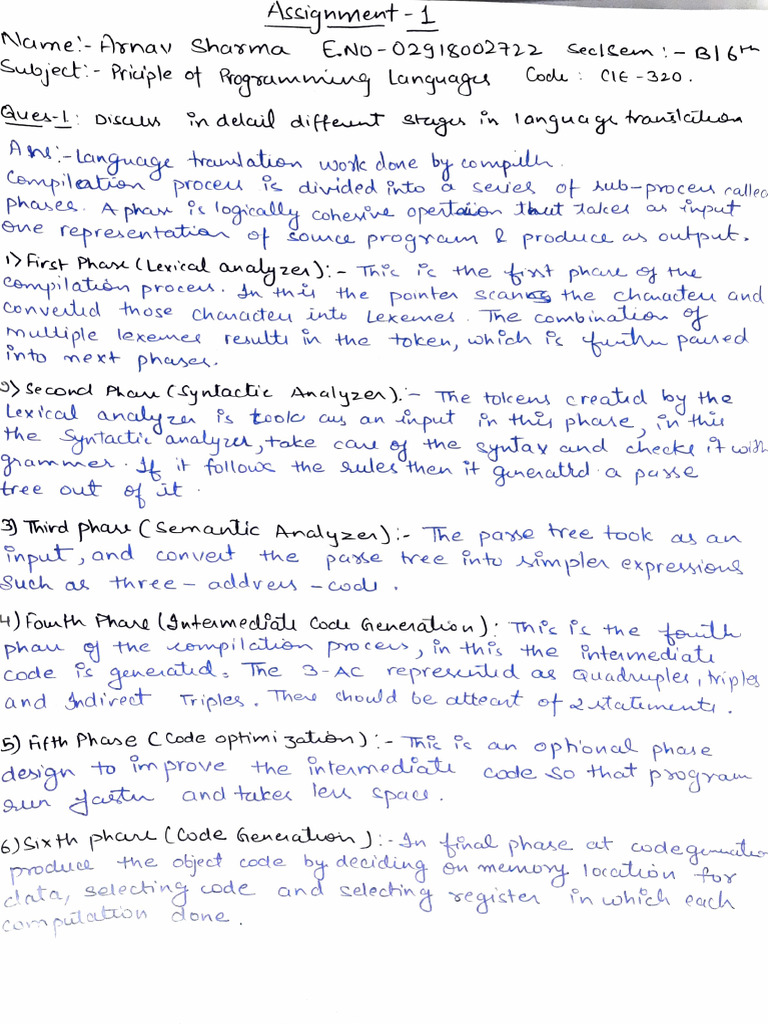 Assignment - 1
Name:- Arnav Sharma E.NO - 02918002722 Sec|Sem :- B|6th
Subject:- Priciple of Programming Languages Code : CIE - 320.
Ques-1: Discuss in detail different stages in language translation
Ans:- Language translation work done by compiler.
Compilation process is divided into a series of sub-process called
phases. A phase is logically cohesive opertaion that takes as input
one representation of source program & produce as output.
1) First Phase (Lexical analyzer) :- This is the first phase of the
compilation process. In this the pointer scans the characters and
converted those characters into Lexemes. The combination of
multiple lexemes results in the token, which is further passed
into next phases.
2) Second Phase (Syntactic Analyzer). :- The tokens created by the
Lexical analyzer is took as an input in this phase, in this
the Syntactic analyzer, take care of the syntax and checks it with
grammer. If it follows the rules then it generated a parse
tree out of it.
3) Third phase (Semantic Analyzer) :- The parse tree took as an
input, and convert the parse tree into simpler expressions
such as three - address - code.
4) Fourth Phase (Intermediate Code Generation) : This is the fouth
phase of the compilation process, in this the intermediate
code is generated. The 3-AC represented as Quadruples, triples
and Indirect Triples. There should be atleast of 2 statements.
5) Fifth Phase (Code optimization) :- This is an optional phase
design to improve the intermediate code so that program
run faster and takes less space.
6) Sixth phase (Code Generation) :- In final phase at code generation
produce the object code by deciding on memory location for
data, selecting code and selecting register in which each
computation done.